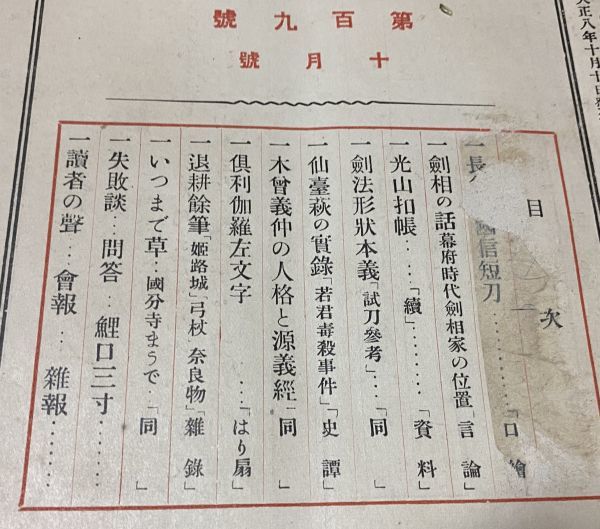 正八年十月十日發
第百九號
十月號
目次
一長 國信短刀………「口繪
一劍相の話幕府時代劍相家の位置「言論」
一光山扣帳…「續」………「資料」
一劍法形狀本義「試刀參考」…「同」
一仙臺萩の實錄「若君毒殺事件」「史譚」
一木曾義仲の人格と源義經「同」
一俱利伽羅左文字…「はり扇」
一退耕餘筆「姬路城」「弓杖 奈良物」「雜錄」
一いつまで草…國分寺まうで…「同」
一失敗談…問答…鯉口三寸………
一讀者の聲…會報…雜報………